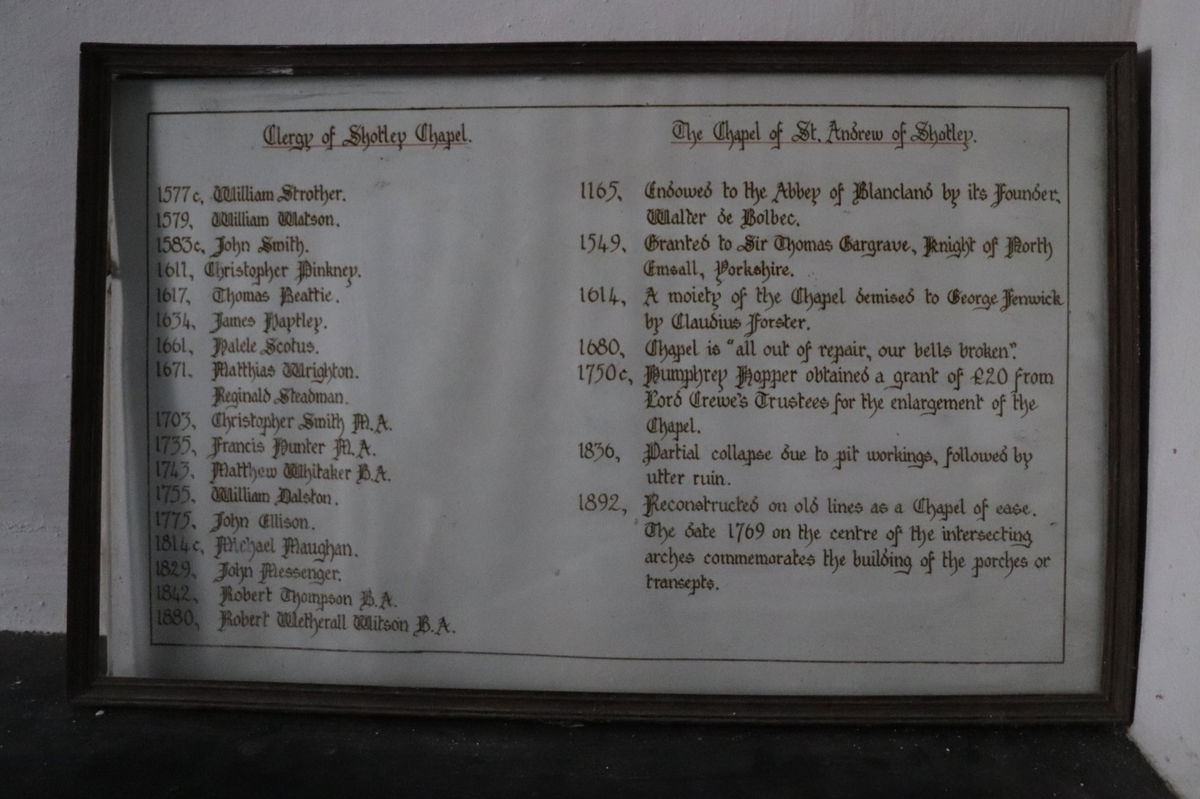 Clergy of Shotley Chapel.
1577c, William Strother.
1579, William Watson.
1583c, John Smith.
1611, Christopher Pinkney.
1617, Thomas Beattie.
1634, James Haptley.
1661, Halele Scotus.
1671, Matthias Wrighton.
Reginald Steadman.
1703, Christopher Smith M.A.
1735, Francis Hunter M.A.
1743, Matthew Whitaker B.A.
1755, William Dalston.
1775, John Ellison.
1814c, Michael Maughan.
1829, John Messenger.
1842, Robert Thompson B.A.
1880, Robert Wetherall Witson B.A.
The Chapel of St. Andrew of Shotley.
1165, Endowed to the Abbey of Blancland by its Founder,
Walter de Bolbec.
1549, Granted to Sir Thomas Gargrave, Knight of North
Emsall, Yorkshire.
1614, A moiety of the Chapel demised to George Fenwick
by Claudius Forster.
1680, Chapel is "all out of repair, our bells broken".
1750c, Humphrey Hopper obtained a grant of £20 from
Lord Crewe's Trustees for the enlargement of the
Chapel.
1836, Partial collapse due to pit workings, followed by
utter ruin.
1892, Reconstructed on old lines as a Chapel of ease.
The date 1769 on the centre of the intersecting
arches commemorates the building of the porches or
transepts.